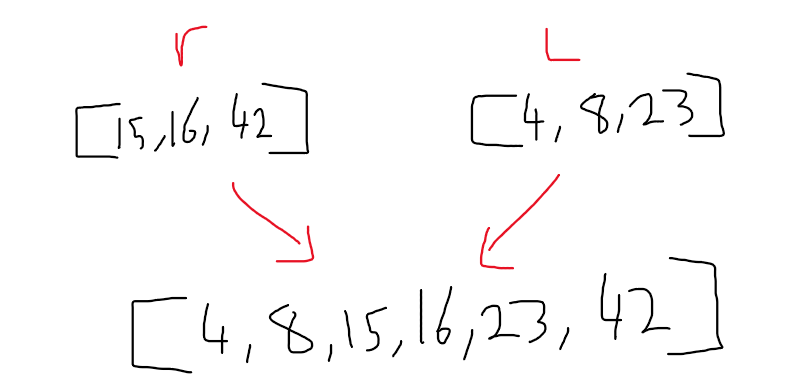 r L
[15,16, 42] [4, 8,23]
[4, 8,15,16,23, 42]